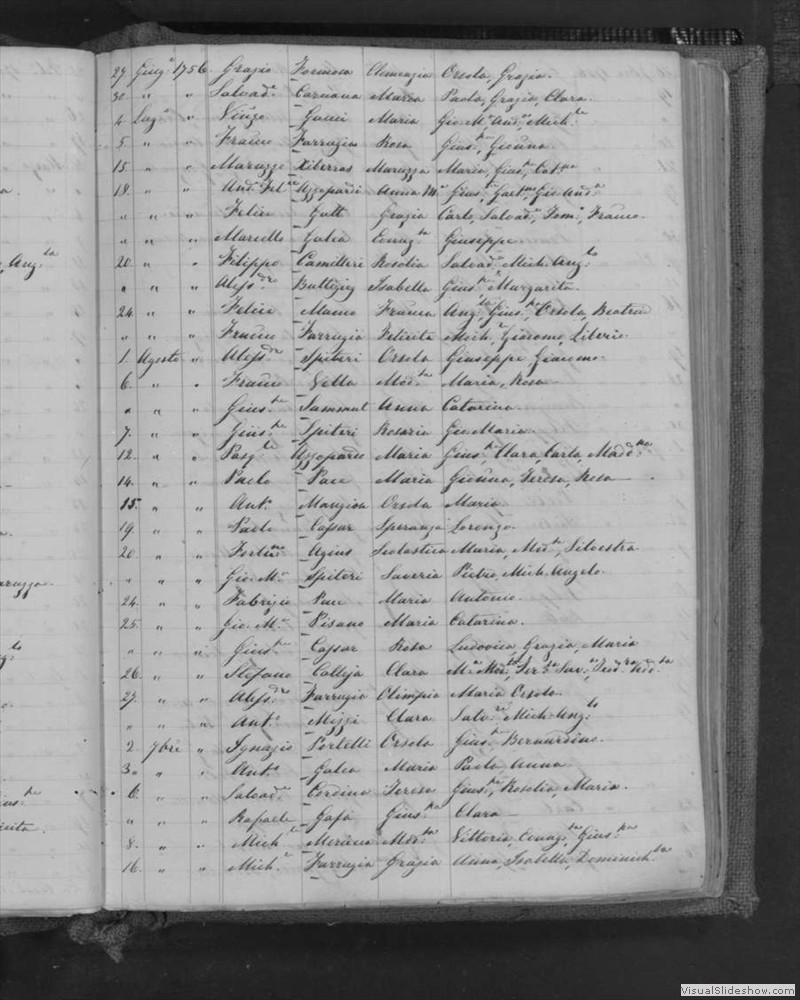 27 Giug.º 1756 Grazio Formosa Clemenzia Orsola, Grazia.
30 " " Salvad.e Caruana Maria Paola, Grazia, Clara.
4 Lug.º " Vinzo Gauci Maria Gio. M.a And.a Mich.le
5 " " Franco Farrugia Rosa Gius.pe Gionna
15 " " Maruzzo Xiberras Maruzza Maria, Gius.pe Cat.na
18 " " And.a Fel.ce Azzopardi Anna M.a Gius.pe Gaet.no Gio And.a
" " " Felice Gatt Grazia Carlo, Salvad.e Tom.o Franco.
" " " Marcello Galea Evang.ta Giuseppe.
20 " " Filippo Camilleri Rosolia Salvad.e Mich. Ang.lo
" " " Aless.dro Buttigieg Isabella Gius.pe Margarita.
24 " " Felice Franca Ang.lo Gius.pe Orsola, Beatrice
" " " Franco Farrugia Felicita Mich.e Giacomo, Liberio.
1 Agosto " Aless.dro Spiteri Orsola Giuseppe Giacomo
6 " " Franco Vella Mad.na Maria, Rosa
" " " Gius.pe Sammut Anna Catarina.
7 " " Gius.pe Spiteri Rosaria Gio. Maria.
12 " " Pasq.le Azzopardi Maria Gius.pe Clara, Carlo, Madd.na
14 " " Paolo Pace Maria Gionna, Teresa, Rosa
15 " " Ant.o Mangion Orsola Maria
19 " " Paolo Cassar Speranza Lorenzo.
20 " " Fortu.no Agius Scolastica Maria, Silvestra
" " " Gio. M.a Spiteri Saveria Pietro, Mich. Angelo.
24 " " Fabrizio Pace Maria Antonio.
25 " " Gio. M.a Pisano Maria Catarina.
" " " Gius.pe Cassar Rosa Ludovica, Grazia, Maria
26 " " Stefano Calleja Clara
27 " " Aless.dro Farrugia Olimpia Maria Orsola.
" " " Ant.o Mizzi Clara Salv.re Mich. Ang.lo
2 7bre " Ignazio Portelli Orsola Gius.pe Bernardino.
3 " " Ant.o Galea Maria Paolo Anna
6 " " Salvad.e Cordina Teresa Gius.pe Rosolia, Maria.
" " " Rafaele Gafà Gius.pa Clara
8 " " Mich.le Merieca Mad.na Vittoria, Evang.ta Gius.pa
16 " " Mich.e Farrugia Grazia Anna, Isabella, Dominich.la
VisualSlideshow.com